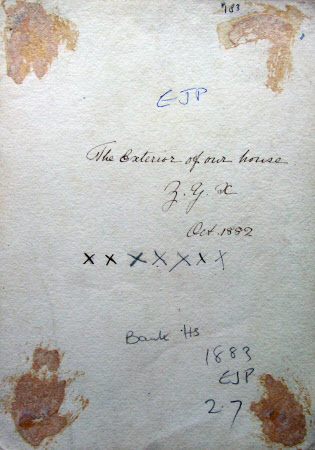 '83
EJP
The Exterior of our house
Z. Y. X
Oct. 1882
x x x x x x x
Bank Hs
1883
EJP
2.7